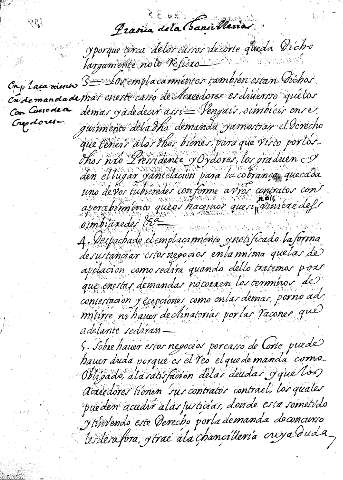 Pratica de la Chancilleria
y porque tira de los casos de corte queda Dicho
largamente no lo refiero
Emplacamientos
en demanda de
Con
3 — Los emplacamientos tambien estan Dichos
mas en este casso de Acreedores es diverso que los
demas y a de decir assi — Vengais, o imbieis en se
guimiento de la dha demanda y a mostrar el Derecho
que teneis a los dhos bienes, para que visto por los
dhos nro Presidente y Oydores, los graduen y
den el lugar y antelacion para la cobranza que cada
uno de vos tubiendes conforme a vros contratos con
apercebimiento que os hacemos que si no
4. Despachado el emplacamiento y notificado la forma
de sustanciar estos negocios es la misma que las de
apelacion como se dira quando dello tratemos pues
que en estas demandas no corren los terminos de
contestacion y excepciones como en las demas, por no ad
mitirse ni haver declinatorias por las racones que
adelante se diran —
5. Sobre haver estos negocios por caso de Corte puede
haver duda porque es el Reo el que demanda como
Obligado, a la satisfacion de las deudas, y que los
Acreedores tienen sus contratos contra el, los quales
pueden acudir a las Justicias, donde esta sometido
y teniendo este Derecho por la demanda de concurso
les desafora, y trae a la Chancilleria cuya duda